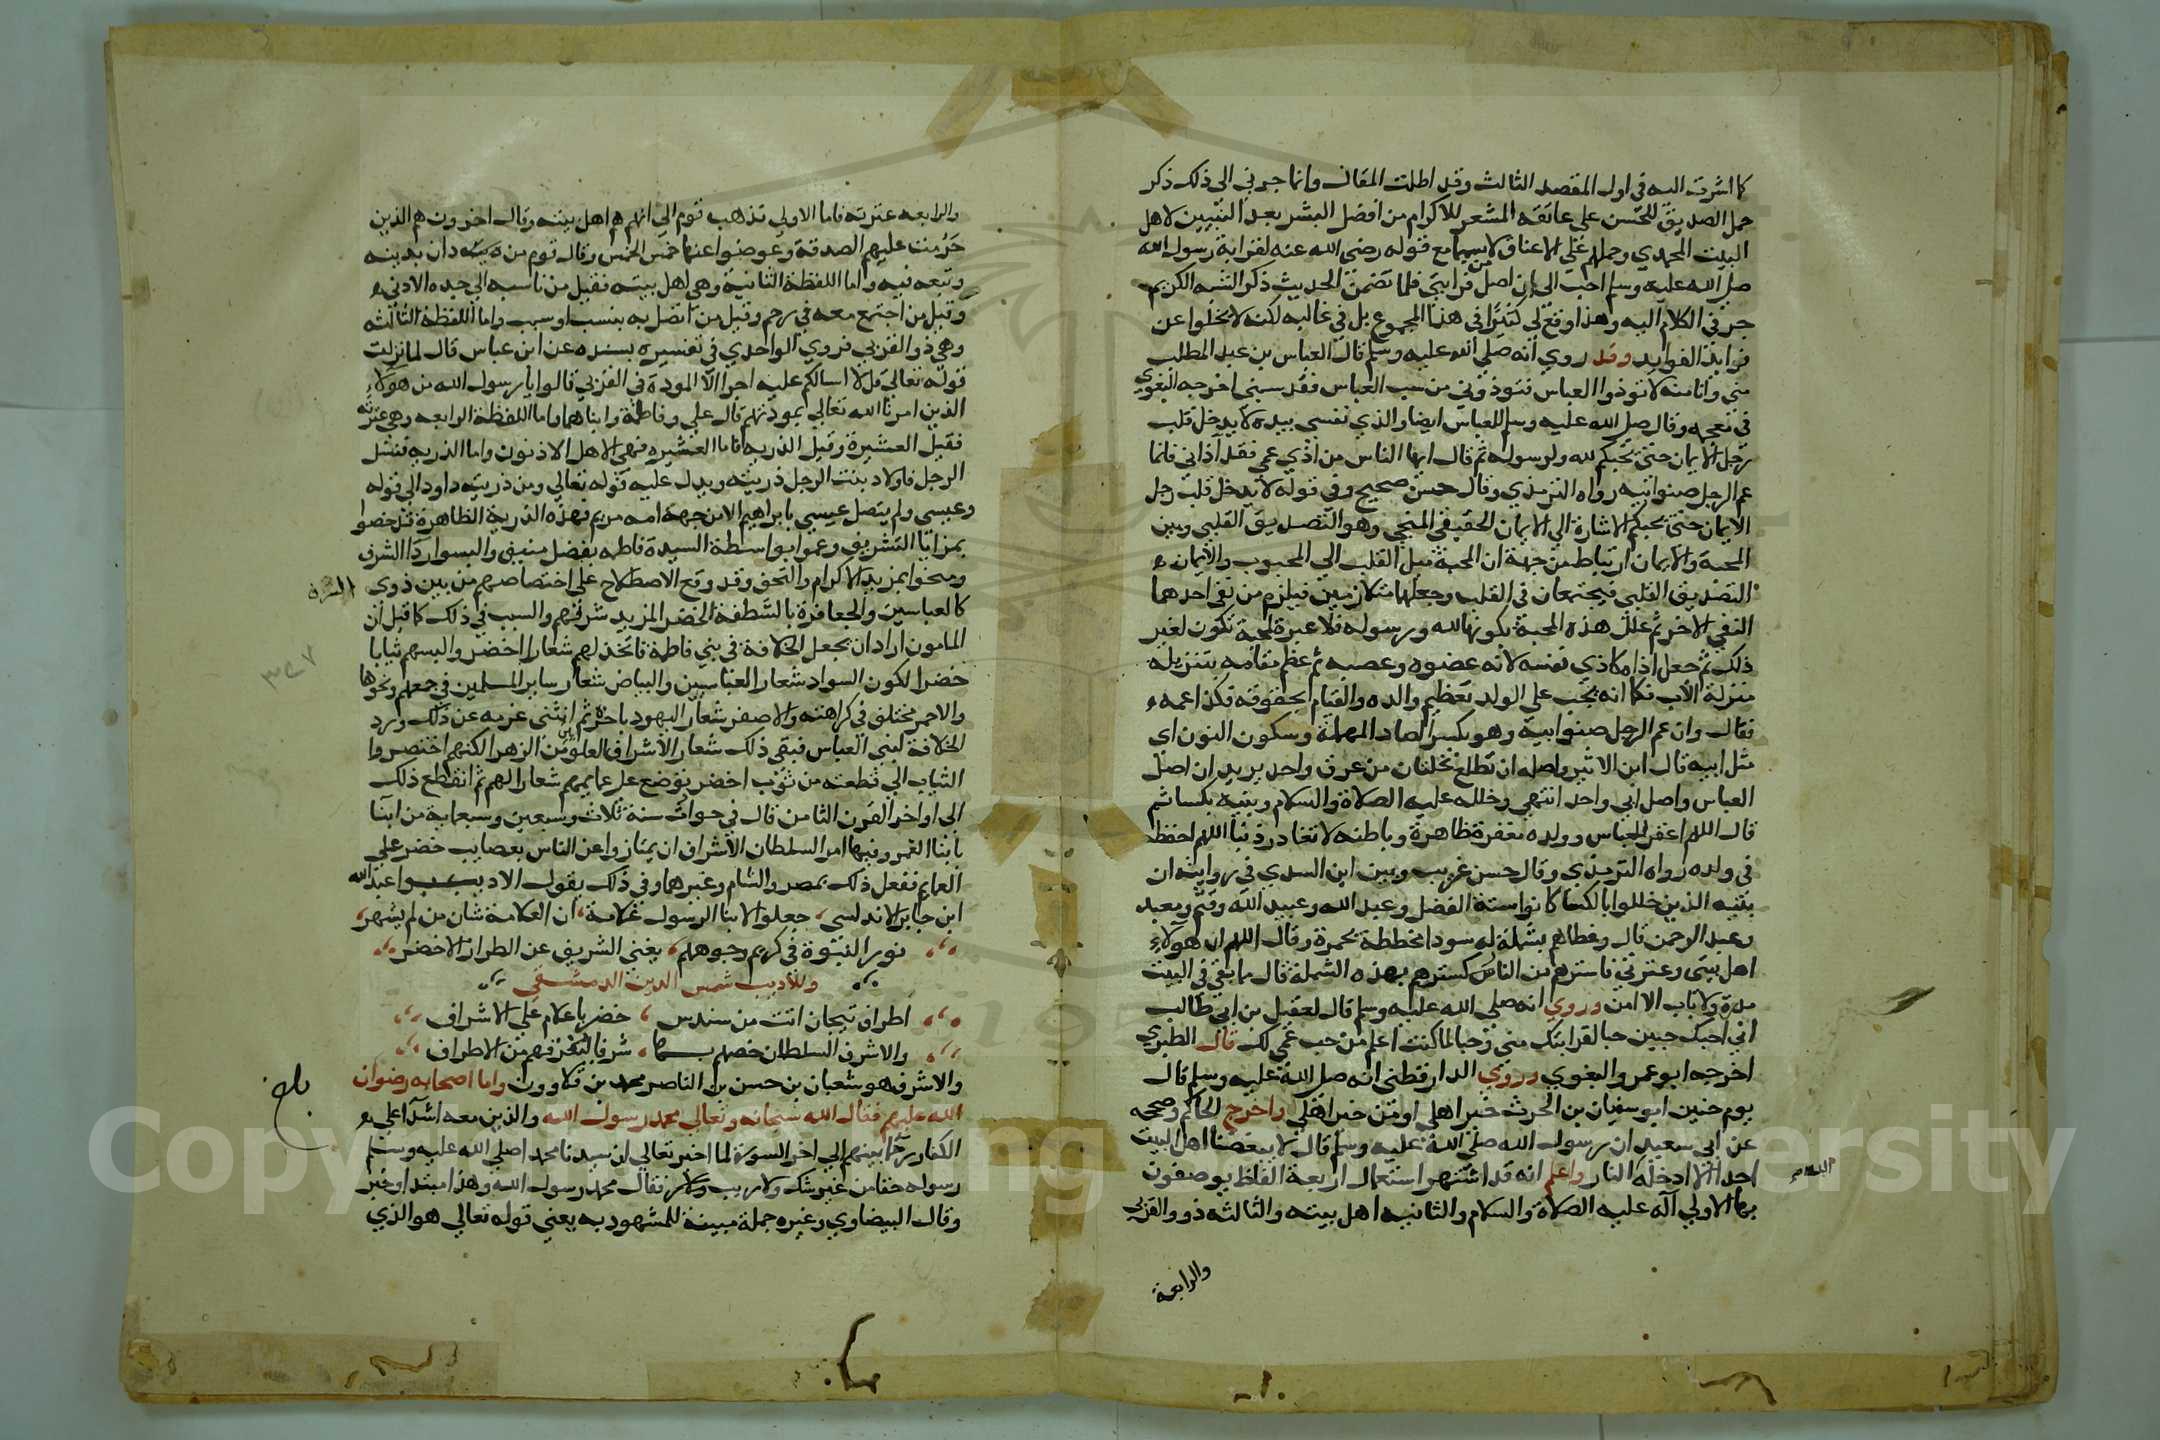 كما اشرت اليه في اول المقصد الثالث وقد اطلت المقال وانما جرني الى ذلك ذكر
حمل الصديق للحسن على عاتقه المشعر للاكرام من افضل البشر بعد النبيين لاهل
البيت المحمدي وحملهم على الاعناق لاسيما مع قوله رضي الله عنه لقرابة رسول الله
صلى الله عليه وسلم احب الى ان اصل من قرابتي فلما تضمن الحديث ذكر النسب الكريم
جرني الكلام اليه وهذا وقع لي كثيرا في هذا المجموع بل في غالبه لكنه لا يخلوا عن
فرايد الفوايد وقد روي انه صلى الله عليه وسلم قال العباس بن عبد المطلب
مني وانا منه لا تؤذوا العباس فتوذوني من سب العباس فقد سبني اخرجه البغوي
في معجمه وقال صلى الله عليه وسلم للعباس ايضا والذي نفسي بيده لا يدخل قلب
رجل الايمان حتى يحبكم لله ولرسوله ثم قال ايها الناس من اذي عمي فقد آذاني فانما
عم الرجل صنو ابيه رواه الترمذي وقال حسن صحيح وفي قوله لا يدخل قلب رجل
الايمان حتى يحبكم الاشارة الى الايمان الحقيقي المنجي وهو التصديق القلبي وبين
المحبة والايمان ارتباط من جهة ان المحبة ميل القلب الي المحبوب والايمان
التصديق القلبي فيجتمعان في القلب وجعلها متلازمين فيلزم من نفي احدهما
النفي الاخر ثم علل هذه المحبة بكونها لله ورسوله فلا عبرة لمحبة تكون لغير
ذلك ثم جعل اذاه كاذي نفسه لانه عضوه وعصبه ثم عظم مقامه بتنزيله
منزلة الاب فكما انه يجب على الولد تعظيم والده والقيام بحقوقه فكذا عمه
فقال وان عم الرجل صنو ابيه وهو بكسر الصاد المهملة وسكون النون اي
مثل ابيه قال ابن الاثير واصله ان تطلع نخلتان من عرق واحد يريد ان اصل
العباس واصل ابي واحد انتهي وجلله عليه الصلاة والسلام وبنيه بكساء ثم
قال اللهم اغفر للعباس وولده مغفرة ظاهرة وباطنه لا تغادر ذنبا اللهم احفظه
في ولده رواه الترمذي وقال حسن غريب وبين ابن السدي في روايته ان
بنيه الذين جللوا بالكساء كانوا ستة الفضل وعبد الله وعبيد الله وقثم ومعبد
وعبد الرحمن قال وغطاهم بشملة له سودا مخططة بحمرة وقال اللهم ان هولاء
اهل بيتي وعترتي فاسترهم من النار كسترهم بهذه الشملة قال فما بقي في البيت
مدرة ولا باب الا امن وروي انه صلى الله عليه وسلم قال لعقيل بن ابي طالب
اني احبك حبين حبا لقرابتك مني وحبا لما كنت اعلم من حب عمي لك قال الطبري
اخرجه ابو عمر والبغوي وروي الدارقطني انه صلى الله عليه وسلم قال
يوم حنين ابو سفيان بن الحرث خير اهلي او من خير اهلي واخرج الحاكم وصححه
عن ابي سعيد ان رسول الله صلى الله عليه وسلم قال لا يبغضنا اهل البيت
احد الا ادخله النار واعلم انه قد اشتهر استعمال اربعة الفاظ يوصفون
بها الاولي آله عليه الصلاة والسلام والثانيه اهل بيته والثالثه ذوو القربى
والرابعة
والرابعه عترته فاما الاولي فذهب قوم الي انهم هم اهل بيته وقال اخرون هم الذين
حرمت عليهم الصدقة وعوضوا عنها خمس الخمس وقال قوم من دان بدينه
وتبعه فيه واما اللفظة الثانية وهي اهل بيته فقيل من ناسبه الي جده الادني
وقيل من اجتمع معه في رحم وقيل من اتصل به بنسب او سبب واما اللفظة الثالثه
وهي ذو القربي فروي الواحدي في تفسيره بسنده عن ابن عباس قال لما نزلت
قوله تعالى قل لا اسالكم عليه اجرا الا المودة في القربي قالوا يا رسول الله من هولاء
الذين امرنا الله تعالي بمودتهم قال علي وفاطمة وابناهما واما اللفظة الرابعه وهي عترته
فقيل العشيرة وقيل الذرية فاما العشيره فهي الاهل الادنون واما الذرية فنسل
الرجل فاولاد بنت الرجل ذريته ويدل عليه قوله تعالي ومن ذريته داود الي قوله
وعيسى ولم يتصل عيسي بابراهيم الا من جهة امه مريم فهذه الذرية الطاهرة قد خصوا
بمزايا التشريف وعموا بواسطة السيدة فاطمه بفضل منيف والبسوا ردا الشرف
ومنحوا بمزيد الاكرام والتحف وقد وقع الاصطلاح على اختصاصهم من بين ذوى الشرف
كالعباسين والجعافرة بالشطفة الخضر المزيد شرفهم والسبب في ذلك كما قيل ان
المامون اراد ان يجعل الخلافة في بني فاطمة فاتخذ لهم شعارا اخضر والبسهم ثيابا
خضرا لكون السواد شعار العباسيين والبياض شعار ساير المسلمين في جمعهم ونحوها
والاحمر مختلف في كراهته والاصفر شعار اليهود باخره ثم انثنى عزمه عن ذلك ورد
الخلافة لبني العباس فبقي ذلك شعار الاشراف العلويين من الزهرا لكنهم اختصروا
الثياب الي قطعه من ثوب اخضر يوضع على عمايمهم شعارا لهم ثم انقطع ذلك
الى اواخر القرن الثامن قال في حوادث سنة ثلاث وسبعين وسبعماية من انبآ
بابنا الغمر وفيها امر السلطان الاشراف ان يمتازوا عن الناس بعصايب خضر على
العمايم ففعل ذلك بمصر والشام وغيرهما وفي ذلك يقول الاديب ابو عبد الله
ابن جابر الاندلسي جعلوا لابنا الرسول علامة ان العلامة شان من لم يشهر
نور النبوة في كريم وجوههم يغني الشريف عن الطراز الاخضر
وللأديب شمس الدين الدمشقي
اطراف تيجان اتت من سندس خضر باعلام على الاشراف
والاشرف السلطان خصهم بها شرفا ليفرقهم من الاطراف
والاشرف هو شعبان بن حسن بن الناصر محمد بن قلاوون واما اصحابه رضوان
الله عليهم فقال الله سبحانه وتعالي محمد رسول الله والذين معه اشدآ على
الكفار رحما بينهم الي اخر السورة لما اخبر تعالي ان سيدنا محمدا صلي الله عليه وسلم
رسوله حقا من غير شك ولا ريب قال محمد رسول الله وهذا مبتدا وخبر
وقال البيضاوي وغيره جملة مبينة للمشهود به يعني قوله تعالي هو الذي
بلغ
٣٤٧
Copyright © King Saud University